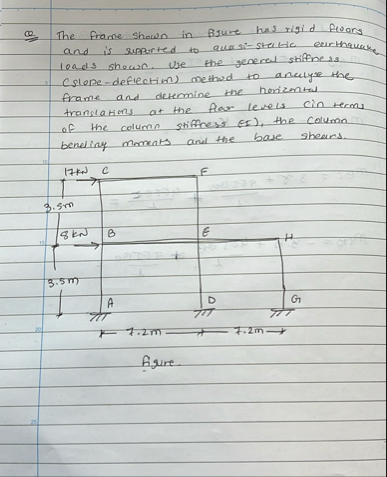 Q The frame shown in figure has rigid floors
and is supported to quasi-static earthquake
loads shown. Use the general stiffness
(slope-deflection) method to analyse the
frame and determine the horizontal
translations at the floor levels (in terms
of the column stiffness EI), the column
bending moments and the base shears.
17kN C F
3.5m
8kN B E H
3.5m
A D G
7.2m 7.2m
figure.